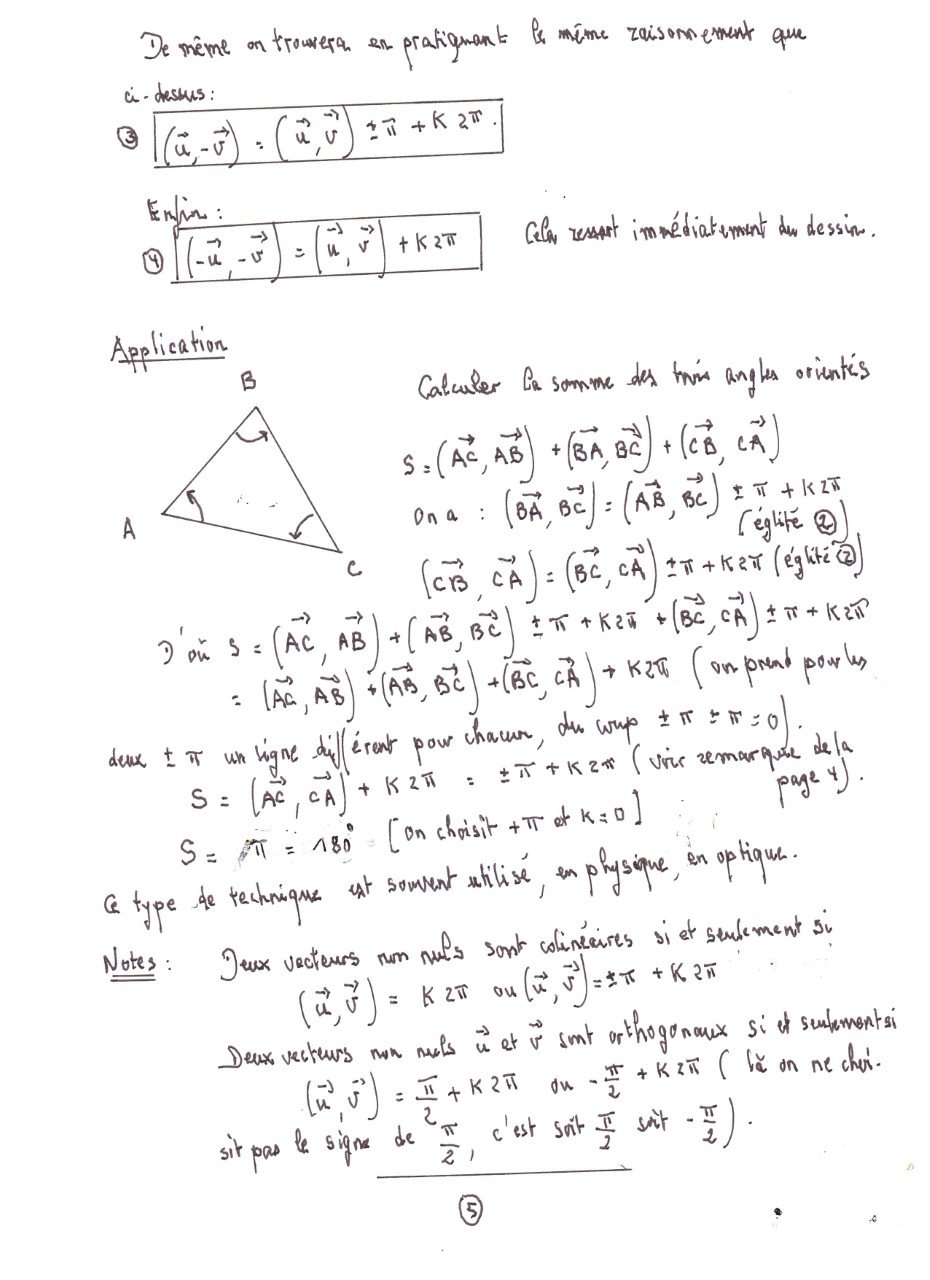 De même on trouvera en pratiquant le même raisonnement que
ci-dessus :
③ (u⃗, -v⃗) = (u⃗, v⃗) ± π + K 2π.
Enfin :
④ (-u⃗, -v⃗) = (u⃗, v⃗) + K 2π Cela ressort immédiatement du dessin.
Application
B
A
C
Calculer la somme des trois angles orientés
S = (AC⃗, AB⃗) + (BA⃗, BC⃗) + (CB⃗, CA⃗)
On a : (BA⃗, BC⃗) = (AB⃗, BC⃗) ± π + K 2π
(églité ②)
(CB⃗, CA⃗) = (BC⃗, CA⃗) ± π + K 2π (églité ②)
D'où S = (AC⃗, AB⃗) + (AB⃗, BC⃗) ± π + K 2π + (BC⃗, CA⃗) ± π + K 2π
= (AC⃗, AB⃗) + (AB⃗, BC⃗) + (BC⃗, CA⃗) + K 2π (on prend pour les
deux ± π un signe différent pour chacun, du coup ± π ± π = 0).
S = (AC⃗, CA⃗) + K 2π = ± π + K 2π (voir remarque de la
page 4).
S = π = 180° [on choisit +π et K = 0]
Ce type de technique est souvent utilisé, en physique, en optique.
Notes : Deux vecteurs non nuls sont colinéaires si et seulement si
(u⃗, v⃗) = K 2π ou (u⃗, v⃗) = ± π + K 2π
Deux vecteurs non nuls u⃗ et v⃗ sont orthogonaux si et seulement si
(u⃗, v⃗) = π/2 + K 2π ou - π/2 + K 2π (là on ne choi-
sit pas le signe de π/2, c'est soit π/2 soit - π/2).
⑤